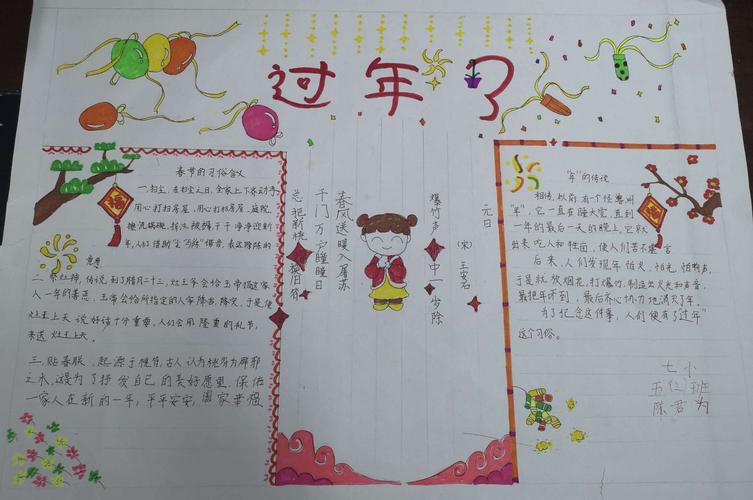 过年了
春节的习俗含义
一.扫尘，在扫尘之日，全家上下齐动手
用心打扫房屋，用心打扫房屋、庭院，
擦洗锅碗，拆洗被褥，干干净净迎新
年，人们借助"尘"与"陈"借音，表达除陈的
意愿
二.祭灶神，传说，到了腊月二十三，灶王爷会给玉帝汇报家
人一年的善恶，玉帝会给所指定的人家降吉，降灾，于是使
灶王上天说好话十分重要，人们会用隆重的礼节，
来送灶王上天。
三.贴春联，起源于桃符，古人认为桃有为辟邪
之木，这是为了抒发自己的美好愿望，保佑
一家人在新的一年，平平安安，国家幸福
元日
（宋）王安石
爆竹声中一岁除
春风送暖入屠苏
千门万户瞳瞳日
总把新桃换旧符
福
福
"年"的传说
相传，以前有个怪兽叫
"年"，它一直在睡大觉，直到
一年的最后一天的晚上，它就
出来吃人和牲畜，使人们苦不堪言
后来，人们发现年怕火，怕光，怕响声，
于是就放烟花，打爆竹，制造出火光和声音，
最把年逐到，最后齐心协力地消灭了年。
为了纪念这件事，人们便有了"过年"
这个习俗。
七小
五(2)班
陈君为